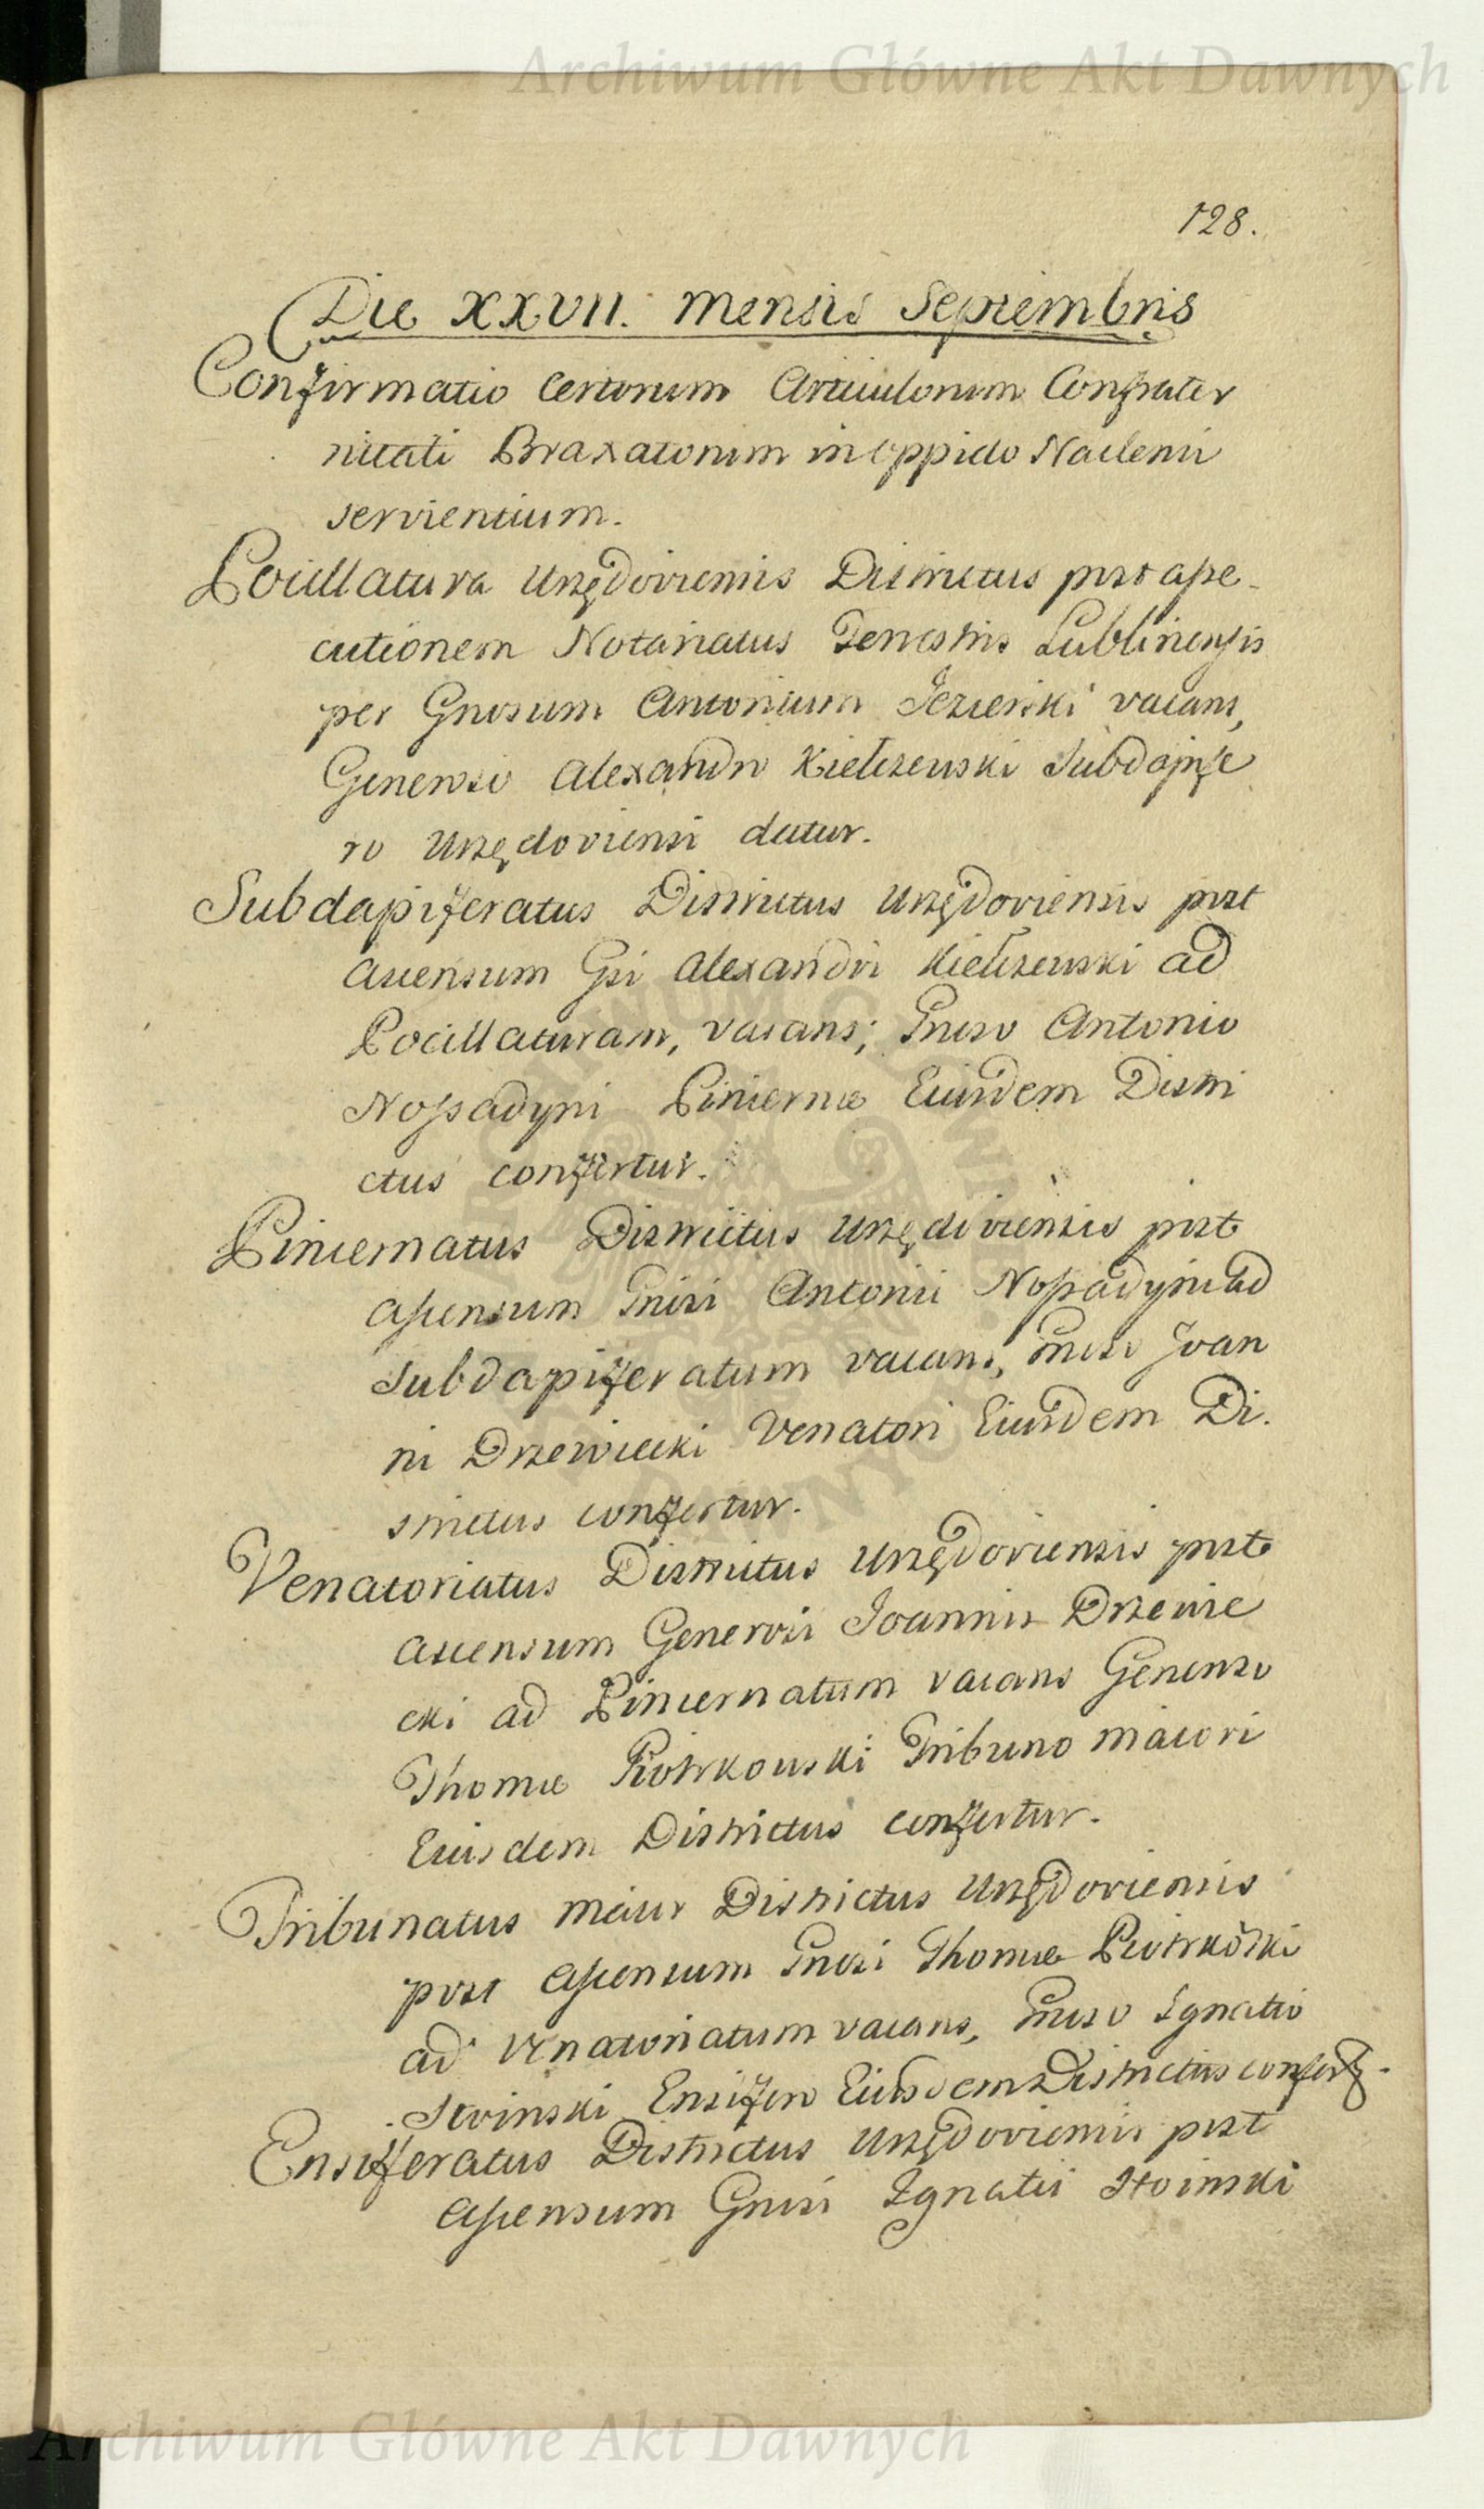 Archiwum Główne Akt Dawnych
128.
Die XXVII. Mensis Septembris
Confirmatio Certorum Articulorum Confrater
nitati Braxatorum in oppido Naclenii
servientium.
Pocillatura Urzędoviensis Districtus post asse-
cutionem Notariatus Terrestris Lublinensis
per Gnosum Antonium Jezierski vacans,
Generoso Alexandro Kieliszewski Subdapife
ro Urzędoviensi datur.
Subdapiferatus Districtus Urzędoviensis post
ascensum Gsi Alexandri Kieliszewski ad
Pocillaturam, vacans; Gneso Antonio
Nossadyni Pincernæ Eiusdem Distri
ctus confertur.
Pincernatus Districtus Urzędoviensis post
assensum Gnisi Antonii Nossadyni ad
Subdapiferatum vacans, Gneso Joan
ni Drzewiecki Venatori Eiusdem Di.
strictus confertur.
Venatoriatus Districtus Urzędoviensis post
ascensum Generosi Joannis Drzewie
cki ad Pincernatum vacans Generoso
Thomæ Piotrkowski Tribuno maiori
Eiusdem Districtus confertur.
Tribunatus Maior Districtus Urzędoviensis
post assensum Gnosi Thomæ Piotrkoski
ad Venatoriatum vacans, Gnoso Ignatio
Stoinski Ensifero Eiusdem Districtus confert.
Ensiferatus Districtus Urzędoviensis post
assensum Gnosi Ignatii Stoinski
Archiwum Główne Akt Dawnych